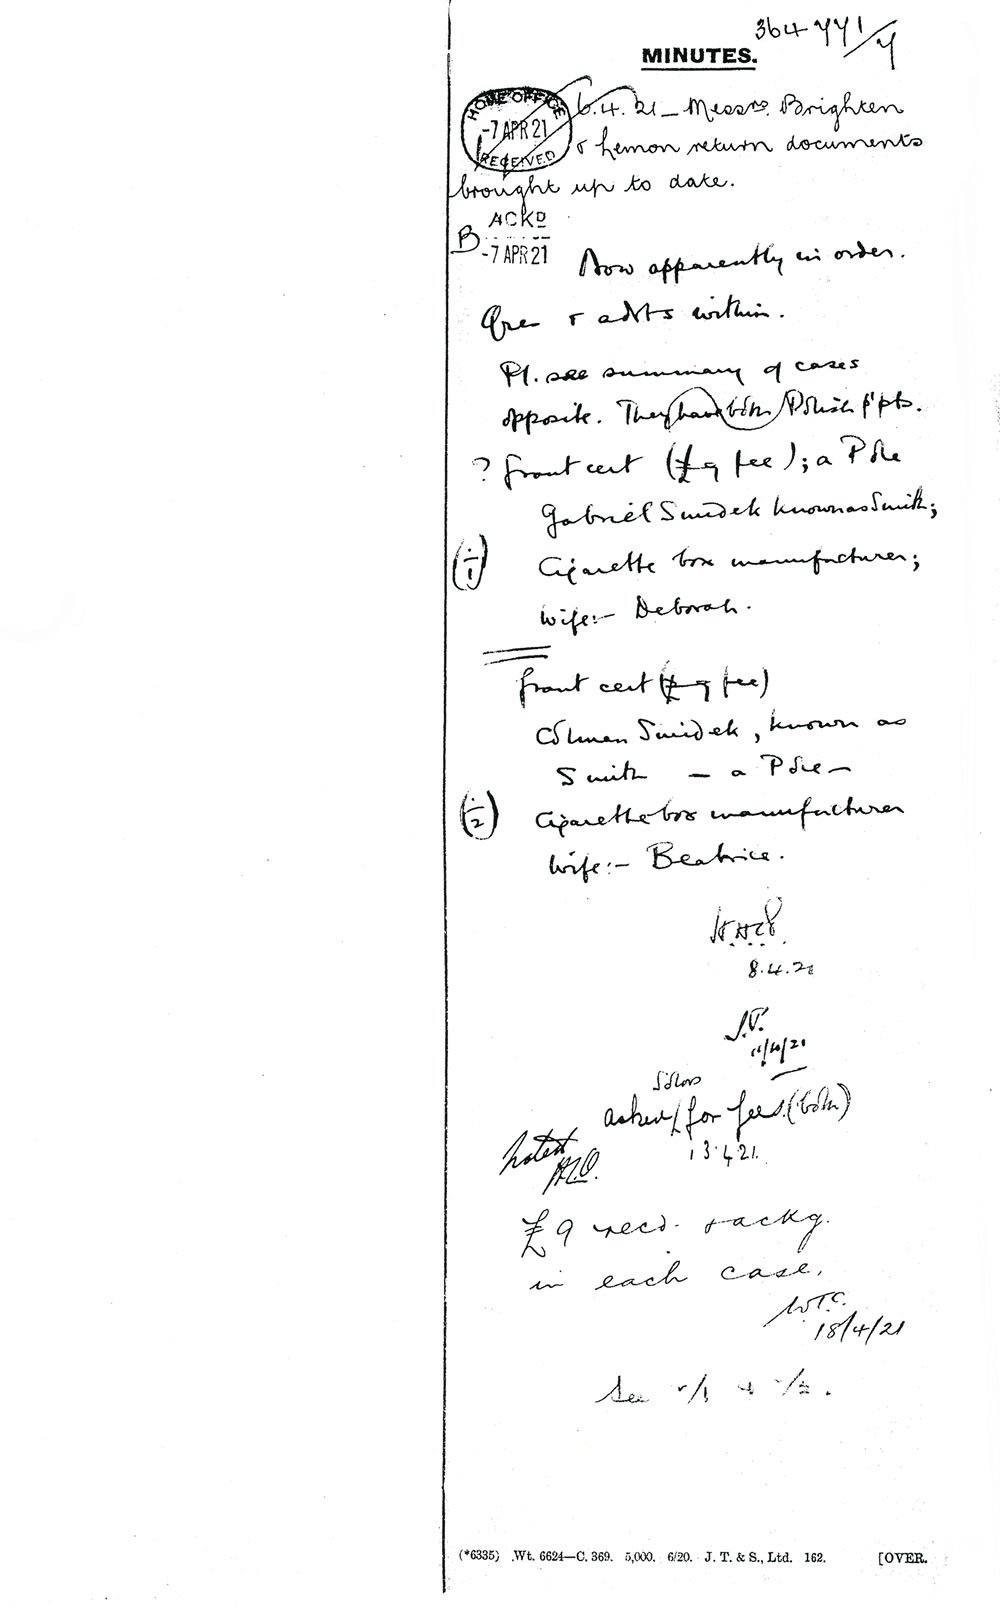 364 771/7
MINUTES.
HOME OFFICE
-7 APR 21
RECEIVED
6.4.21 - Messrs. Brighten
& Lemon return documents
brought up to date.
ACKD
B -7 APR 21
Now apparently in order.
& advts within.
Pl. see summary of cases
opposite. They have both Polish p'pts.
? Grant cert (£9 fee); a Pole
Gabriel Smidek known as Smith;
(÷/1) Cigarette box manufacturer;
wife:- Deborah.
Grant cert (£9 fee)
Colman Smidek, known as
Smith - a Pole -
(÷/2) Cigarette box manufacturer
Wife:- Beatrice.
8.4.21
J.P.
11/4/21
Sol'ors
asked / for fees (both)
13.4.21.
Noted
£9 recd. & ackg.
in each case.
W.T.C.
18/4/21
See /1 + /2.
(*6335) Wt. 6624—C. 369. 5,000. 6/20. J. T. & S., Ltd. 162. [OVER.